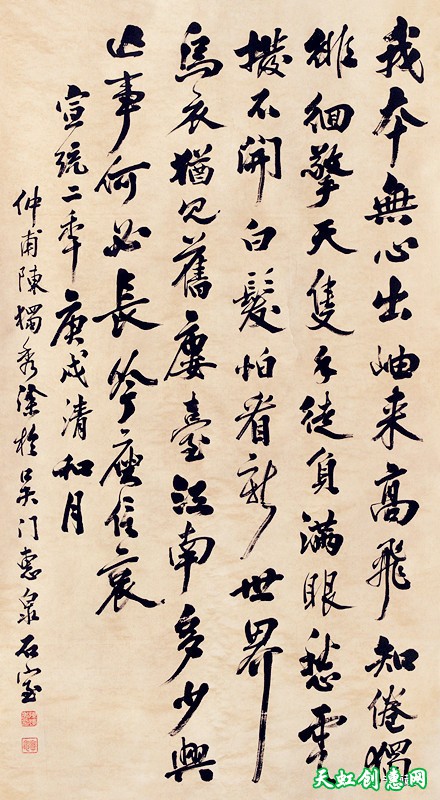 我本無心出岫来高飛知倦獨
徘徊擎天隻手徒負滿眼愁雲
撥不開白髮怕看新世界
烏衣猶見舊廔臺江南多少興
亡事何必長吟庾信哀
宣統二年庚戌清和月
仲甫陳獨秀塗於吳门惠泉石室
天虹创意网